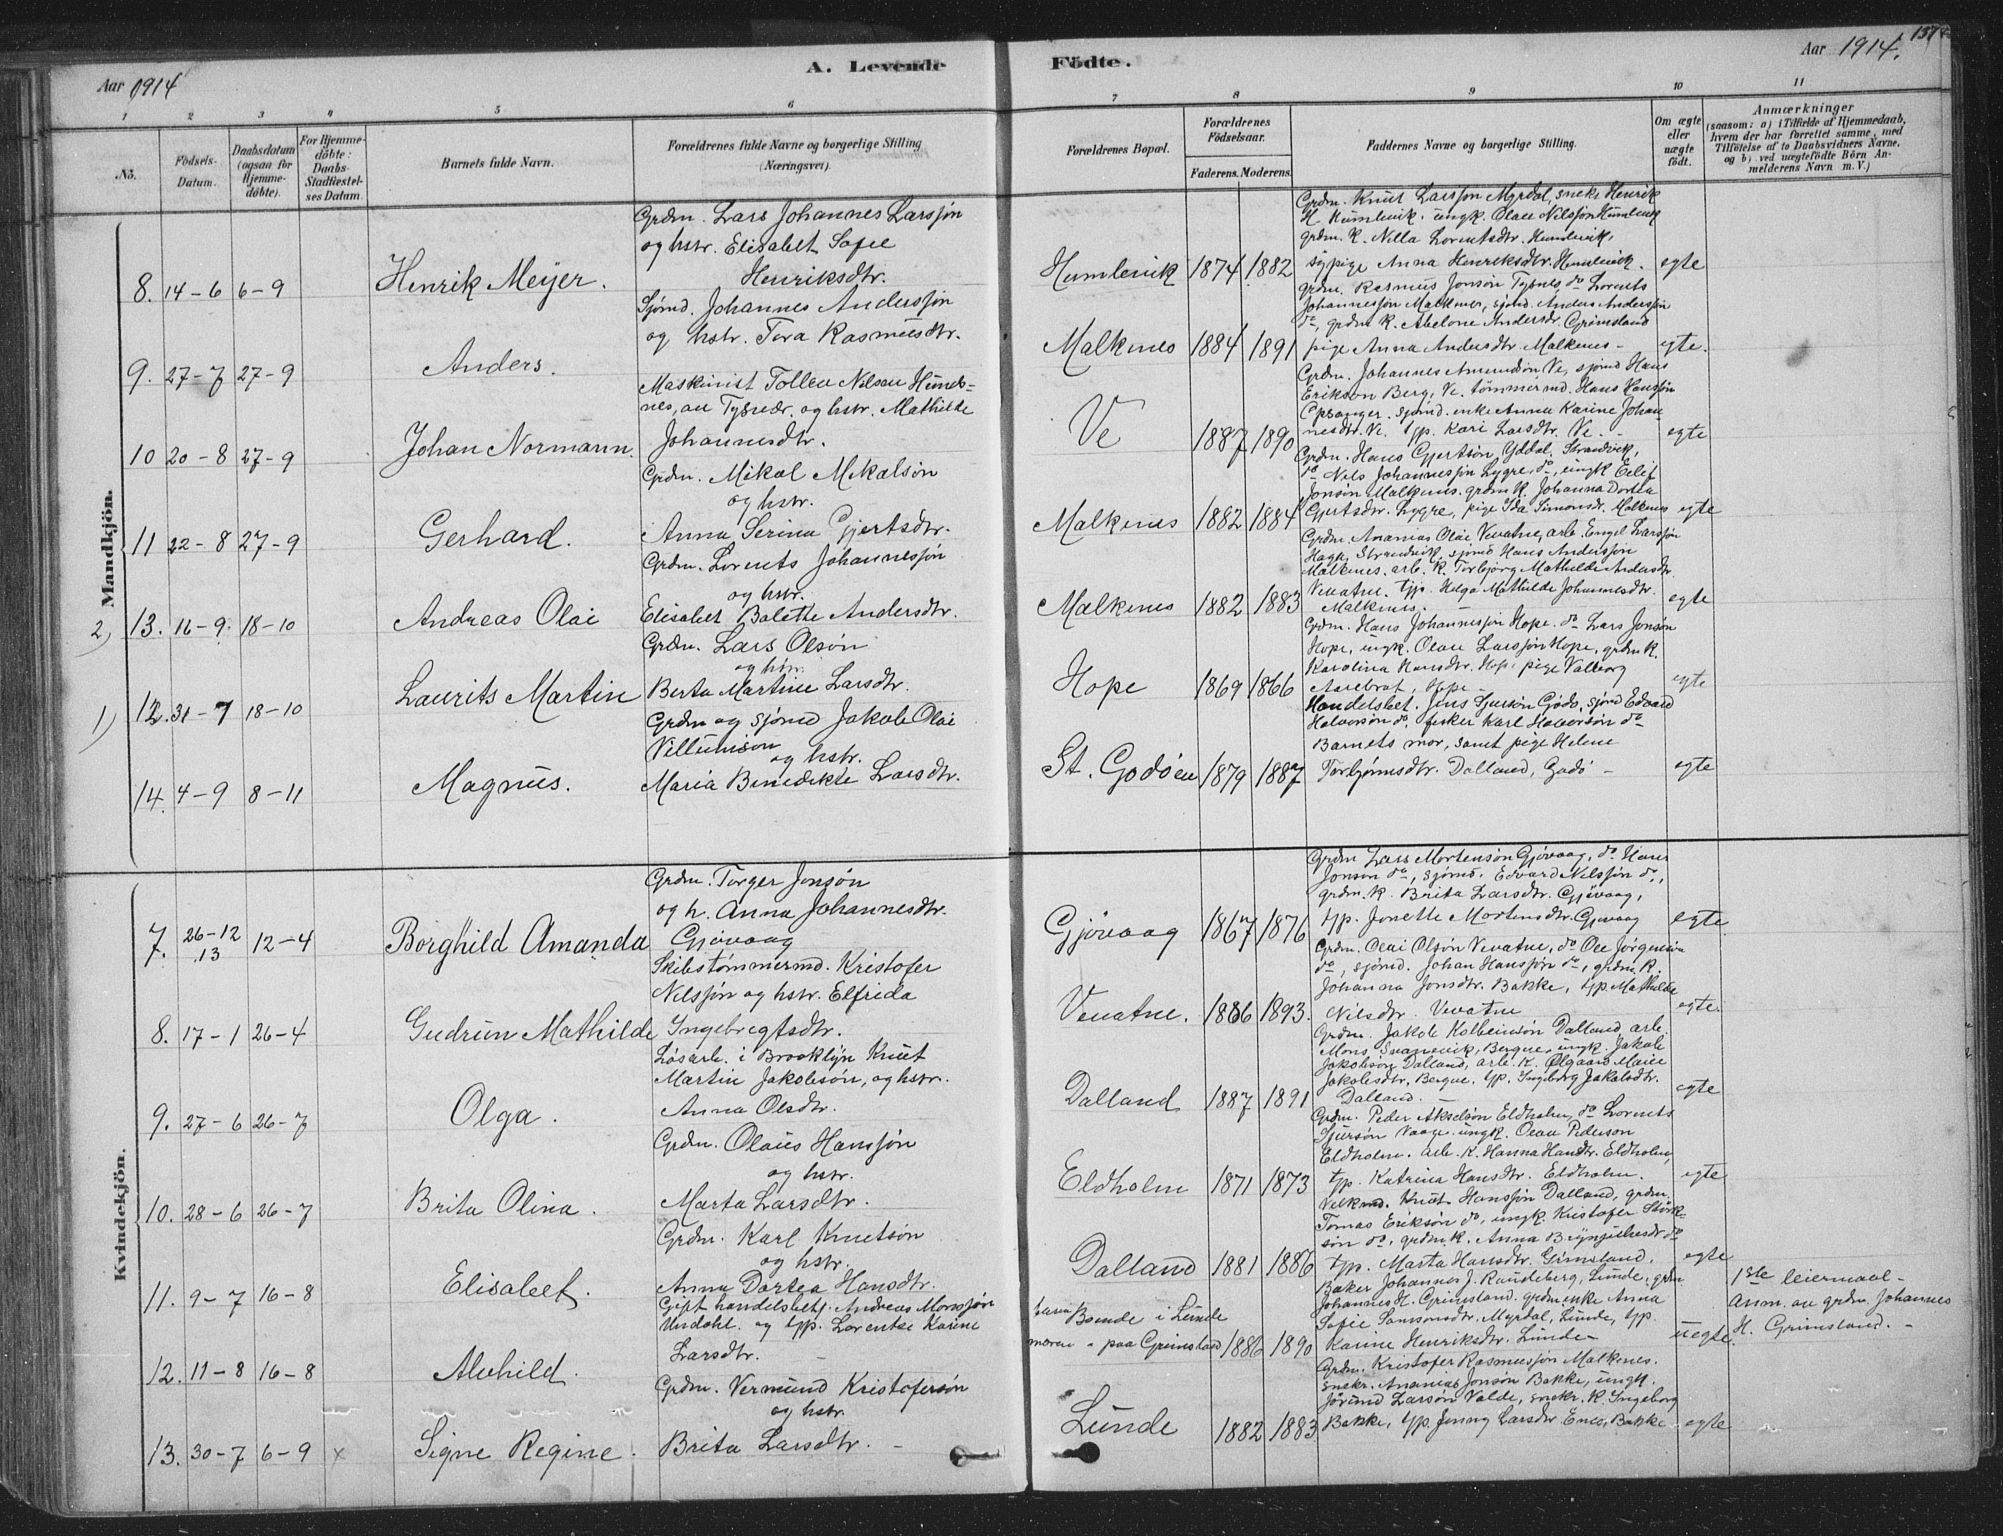 Aar 1914
A. Levende
Födte.
Aar 1914.
1
2
3
4
5
6
7
8
9
10
11
No.
Födsels-
Datum.
Daabsdatum
(ogsaa for
Hjemme-
döbte).
For Hjemme-
döbte:
Daabs-
Stadfæstel-
ses Datum.
Barnets fulde Navn.
Forældrenes fulde Navne og borgerlige Stilling
(Næringsvei).
Forældrenes Bopæl.
Forældrenes
Födselsaar.
Faderens.
Moderens.
Faddernes Navne og borgerlige Stilling.
Om ægte
eller
uægte
födt.
Anmærkninger
(saasom: a) i Tilfælde af Hjemmedaab,
hvem der har forrettet samme, med
Tilföielse af to Daabsvidners Navne.
og b) ved uægtefödte Börn An-
melderens Navn m. V.)
Mandkjön.
8. 14-6 6-9 Henrik Meyer.
Grdm. Lars Johannes Larssøn
og hstr. Elisabet Sofie
Henriksdtr.
Humlevik 1874 1882
Grdm. Knut Larssøn Myrdal, snekr Henrik
H. Humlevik, ungk. Olav Nilssøn Humlevik
grdm. K. Nilla Lorentsdtr. Humlevik,
sypige Anna Henriksdtr. Humlevik. egte
9. 27-7 27-9 Anders.
Sjømd. Johannes Anderssøn
og hstr. Tora Rasmusdtr.
Malkenes 1884 1891
grdm. Rasmus Jonsøn Tysnes, do Lorents
Johannessøn Malkenes, sjømd. Anders Anderssøn
do, grdm K. Abelone Andersdr. Grimsland
pige Anna Andersdtr Malkenes - egte.
10 20-8 27-9 Johan Normann.
Maskinist Tollev Nilsen Hunds-
nes, av Tysvær. og hstr. Mathilde
Johannesdtr.
Ve 1887 1890
Grdm. Johannes Amundsøn Ve, sjømd Hans
Eriksøn Berg, Ve. tømmermd. Hans Hanssøn
Opsanger. sjømd. enke Anna Karine Johan
nesdtr. Ve. tjp. Kari Larsdtr. Ve. - egte
11 22-8 27-9 Gerhard.
Grdm. Mikal Mikalsøn
og hstr.
Anna Serina Gjertsdtr.
Malkenes 1882 1884
Grdm. Hans Gjertsøn, Yddal, Strandvik,
do Nils Johannessøn Lygre, do, ungk Eilif
Jonsøn Malkenes. grdm K. Johanna Dortea
Gjertsdtr. Lygre, pige Ida Simonsdr. Malkenes egte
2) 13. 16-9. 18-10 Andreas Olai
Grdm. Lorents Johannessøn
og hstr.
Elisabet Bolette Andersdtr.
Malkenes 1882 1883
Grdm. Ananias Olai Vevatne, arb. Engel Larssøn
Haga, Strandvik, sjømd Hans Anderssøn
Malkenes. arb. K. Torbjørg Mathilde Andersdtr.
Vevatne. tjp. Helga Mathilde Johannesdtr.
Malkenes. egte
1) 12. 31-7 18-10 Laurits Martin
Grdm. Lars Olsøn
og hstr.
Berta Martine Larsdtr.
Hope 1869 1866
Grdm. Hans Johannessøn Hope. do Lars Jonsøn
Hope, ungk. Olav Larssøn Hope, grdm K.
Karolina Hansdtr. Hope, pige Valborg
Aarebrot, Hope - egte
14. 4-9 8-11 Magnus.
Grdm og sjømd Jakob Olai
Villumsøn
og hstr.
Maria Benedikte Larsdtr.
St. Godøen 1879 1887
Handelsbet. Jens Sjursøn Godø, sjømd Edvard
Halvorsøn do, fisker Karl Halvorsøn do
Barnets mor, samt pige Helene
Torbjørnsdtr. Dalland, Godø - egte
Kvindekjön.
7. 26-12 12-4 Borghild Amanda
13
Grdm. Torger Jonsøn
og h. Anna Johannesdtr.
Gjøvaag
Gjøvaag 1867 1876
Grdm Lars Mortensøn Gjøvaag, do Hans
Jonsøn do, sjømd. Edvard Nilssøn do,
grdm. K. Brita Larsdtr. Gjøvaag,
tjp. Jonette Mortensdtr. Gjøvaag egte
8. 17-1 26-4 Gudrun Mathilde
Skibstømmermd. Kristofer
Nilssøn og hstr. Elfrida
Ingebrigtsdtr.
Vevatne. 1886 1893.
Grdm. Olai Olsøn Vevatne, do Ole Jørgensøn
do, sjømd. Johan Hanssøn do, grdm. K.
Johanna Jonsdtr. Bakke, tjp. Mathilde
Nilsdtr. Vevatne egte.
9. 27-6 26-7 Olga.
Løsarb. i Brooklyn Knut
Martin Jakobsøn, og hstr.
Anna Olsdtr.
Dalland 1887 1891
Grdm. Jakob Kolbeinsøn Dalland, arb.
Mons Svanevik, Berque, ungk. Jakob
Jakobsøn Dalland, arb. K. Olgaard Marie
Jakobsdtr. Berque. tjp. Ingeborg Jakobsdtr.
Dalland. - egte
10. 28-6 26-7 Brita Olina.
Grdm. Olaus Hanssøn
og hstr.
Marta Larsdtr.
Eldholm 1871 1873
Grdm. Peder Akselsøn Eldholm, do Lorents
Sjursøn Vaage. ungk. Olav Pederson
Eldholm. arb. K. Hanna Hansdtr. Eldholm,
tjp. Katrina Hansdtr. Eldholm. egte
11. 9-7 16-8 Elisabet.
Grdm. Karl Knutsøn
og hstr.
Anna Dortea Hansdtr.
Dalland 1881 1886
Knut Hanssøn Dalland, grdm.
Tomas Eriksøn do, ungk. Kristofer Størk-
søn do, grdm K. Anna Brynjulvsdr do
tjp. Marta Hansdtr. Grimsland. egte
12. 11-8 16-8 Alvhild.
Gift handelsbetj. Andreas Monssøn
Undahl. og tjp. Lorentse Karine
Larsdtr. -
faren Boende i Lunde
moren - paa Grimsland 1886 1890
Baker Johannes J. Raudeberg, Lunde, grdm
Johannes H. Grimsland. grdm. enke Anna
Sofie Samsonsdtr. Myrdal, Lunde, tjp.
Karine Henriksdtr. Lunde - uegte
1ste leiermaal -
Anm. av grdm. Johannes
H. Grimsland. -
13. 30-7 6-9 x Signe Regine.
Grdm. Vermund Kristofersøn
og hstr.
Brita Larsdtr. -
Lunde 1882 1883
Grdm. Kristofer Rasmussøn Malkenes.
snekr. Ananias Jonsøn Bakke, ungk.
Jørund Larsøn Valde, snekr. K. Ingeborg
Bakke, tjp. Jenny Larsdtr Enes, Bakke - egte